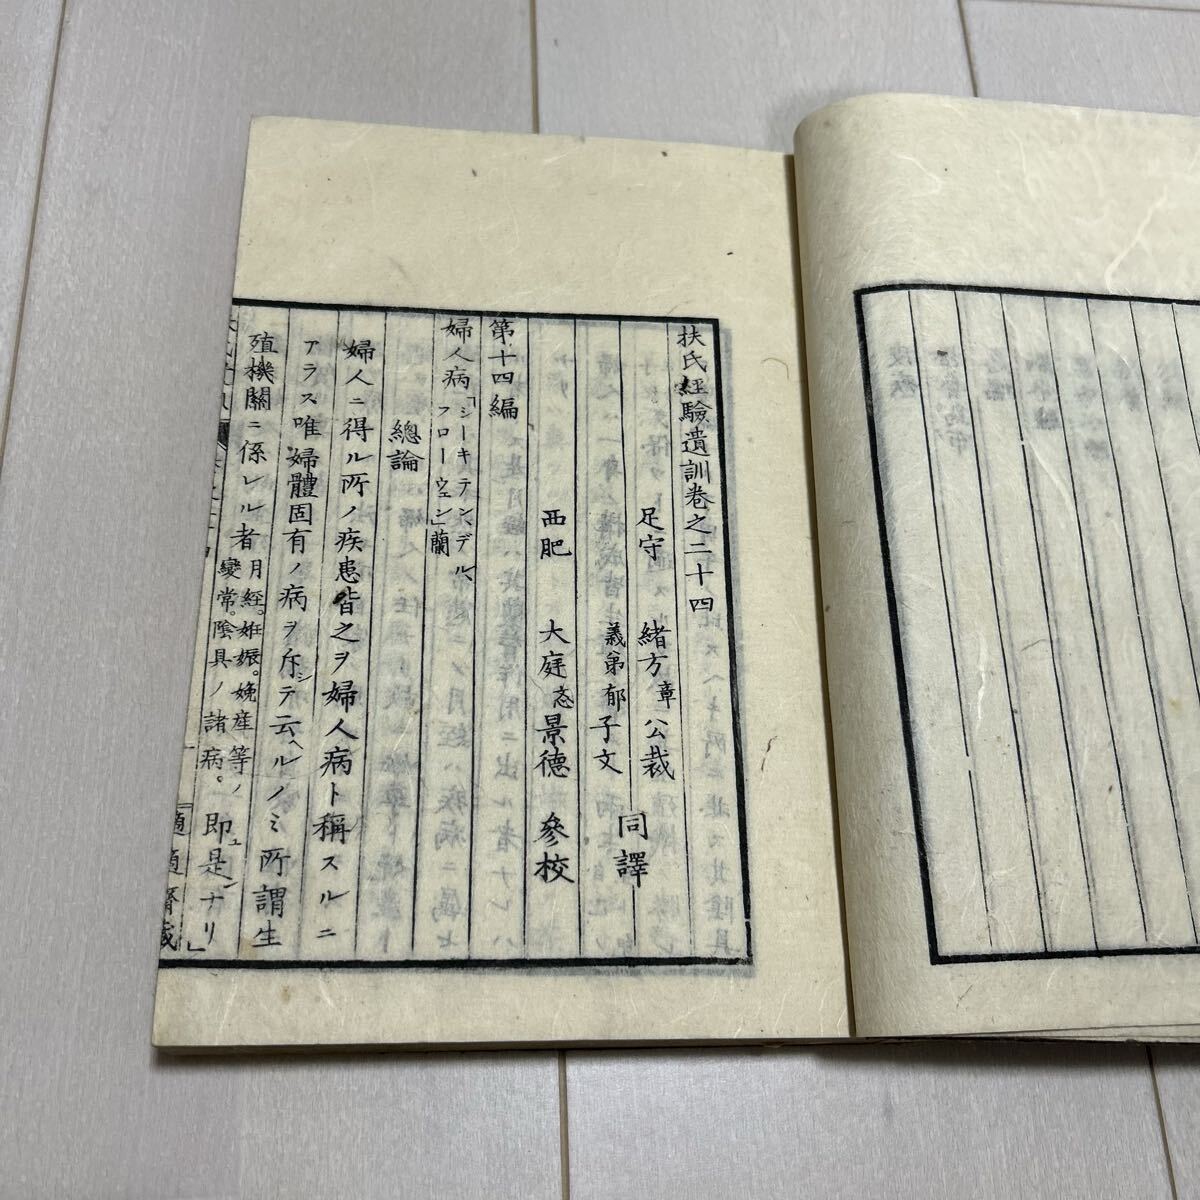 扶氏經驗遺訓卷之二十四
足守 緒方章公裁 同譯
義弟郁子文
西肥 大庭忞景德 參校
第十四編
婦人病「シーキテン、デル、フローウェン」蘭
總論
婦人ニ得ル所ノ疾患皆之ヲ婦人病ト稱スルニ
アラス唯婦體固有ノ病ヲ斥シテ云ヘルノミ所謂生
殖機關ニ係レル者月經。妊娠。娩産等ノ變常。陰具ノ諸病。即是ナリ
適適齋藏